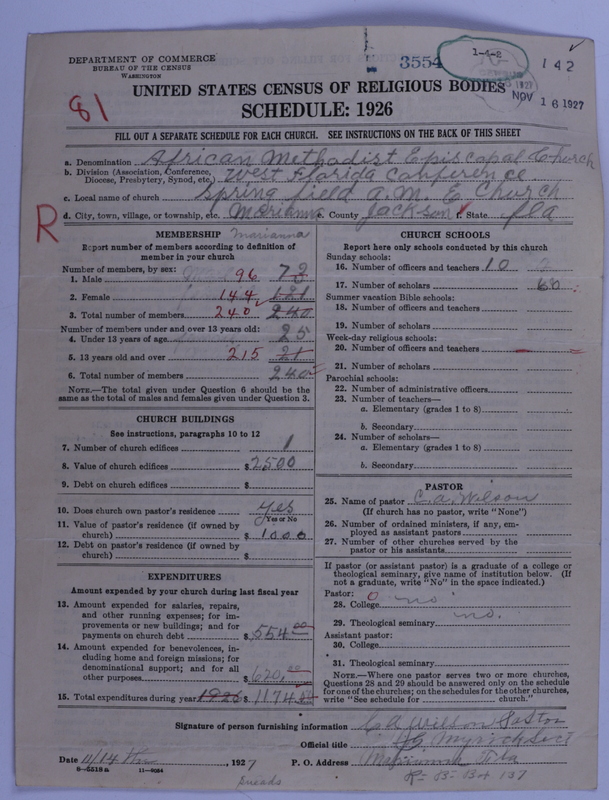 DEPARTMENT OF COMMERCE
BUREAU OF THE CENSUS
WASHINGTON
3554
1-4-2
142
NOV 16 1927
UNITED STATES CENSUS OF RELIGIOUS BODIES
SCHEDULE: 1926
81
FILL OUT A SEPARATE SCHEDULE FOR EACH CHURCH. SEE INSTRUCTIONS ON THE BACK OF THIS SHEET
a. Denomination African Methodist Episcopal Church
b. Division (Association, Conference, Diocese, Presbytery, Synod, etc.) West Florida Conference
c. Local name of church Spring field A. M. E Church
d. City, town, village, or township, etc. Marianna e. County Jackson f. State Fla
R
MEMBERSHIP Marianna
Report number of members according to definition of
member in your church
Number of members, by sex:
1. Male 96 73
2. Female 144 121
3. Total number of members 240 240
Number of members under and over 13 years old:
4. Under 13 years of age 25
5. 13 years old and over 215 21
6. Total number of members 240
NOTE.—The total given under Question 6 should be the
same as the total of males and females given under Question 3.
CHURCH BUILDINGS
See instructions, paragraphs 10 to 12
7. Number of church edifices 1
8. Value of church edifices $2500
9. Debt on church edifices $
10. Does church own pastor's residence yes
Yes or No
11. Value of pastor's residence (if owned by
church) $1000
12. Debt on pastor's residence (if owned by
church) $
EXPENDITURES
Amount expended by your church during last fiscal year
13. Amount expended for salaries, repairs,
and other running expenses; for im-
provements or new buildings; and for
payments on church debt $554.00
14. Amount expended for benevolences, in-
cluding home and foreign missions; for
denominational support; and for all
other purposes $620.00
15. Total expenditures during year 1926 $1174.00
CHURCH SCHOOLS
Report here only schools conducted by this church
Sunday schools:
16. Number of officers and teachers 10
17. Number of scholars 60
Summer vacation Bible schools:
18. Number of officers and teachers
19. Number of scholars
Week-day religious schools:
20. Number of officers and teachers
21. Number of scholars
Parochial schools:
22. Number of administrative officers
23. Number of teachers—
a. Elementary (grades 1 to 8)
b. Secondary
24. Number of scholars—
a. Elementary (grades 1 to 8)
b. Secondary
PASTOR
25. Name of pastor C. A. Wilson
(If church has no pastor, write "None")
26. Number of ordained ministers, if any, em-
ployed as assistant pastors
27. Number of other churches served by the
pastor or his assistants
If pastor (or assistant pastor) is a graduate of a college or
theological seminary, give name of institution below. (If
not a graduate, write "No" in the space indicated.)
Pastor: 0
28. College no
29. Theological seminary no.
Assistant pastor:
30. College
31. Theological seminary
NOTE.—Where one pastor serves two or more churches,
Questions 28 and 29 should be answered only on the schedule
for one of the churches; on the schedules for the other churches,
write "See schedule for church."
Signature of person furnishing information C A Wilson Pastor
Official title
Date 11/14 1927 P. O. Address Marianna Fla
8-5518a 11-9064
137